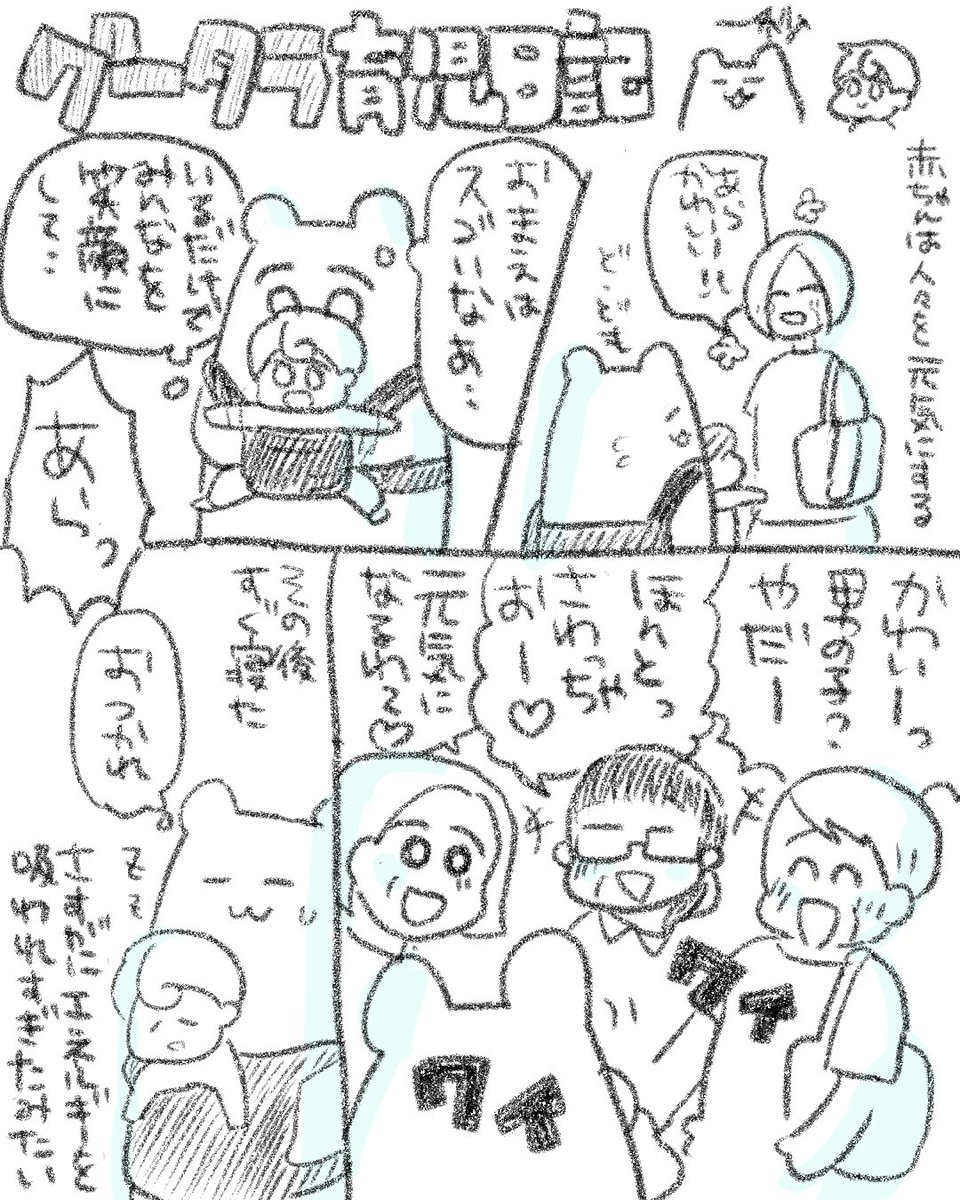 グータラ育児日記
赤ちゃんは人々を元気にする
あら
かわいい!!
どきどき
おまえは
スゴいなあ…
いるだけで
みんなを
笑顔に
して…
あらっ
かわいーっ
男の子?
やだー
ほんとっ
さわっちゃ
おー♡
元気に
なるわ~♡
ワイ
ワイ
その後
すぐ寝た
おつかれ
さすがにエネルギーを
吸われすぎたみたい